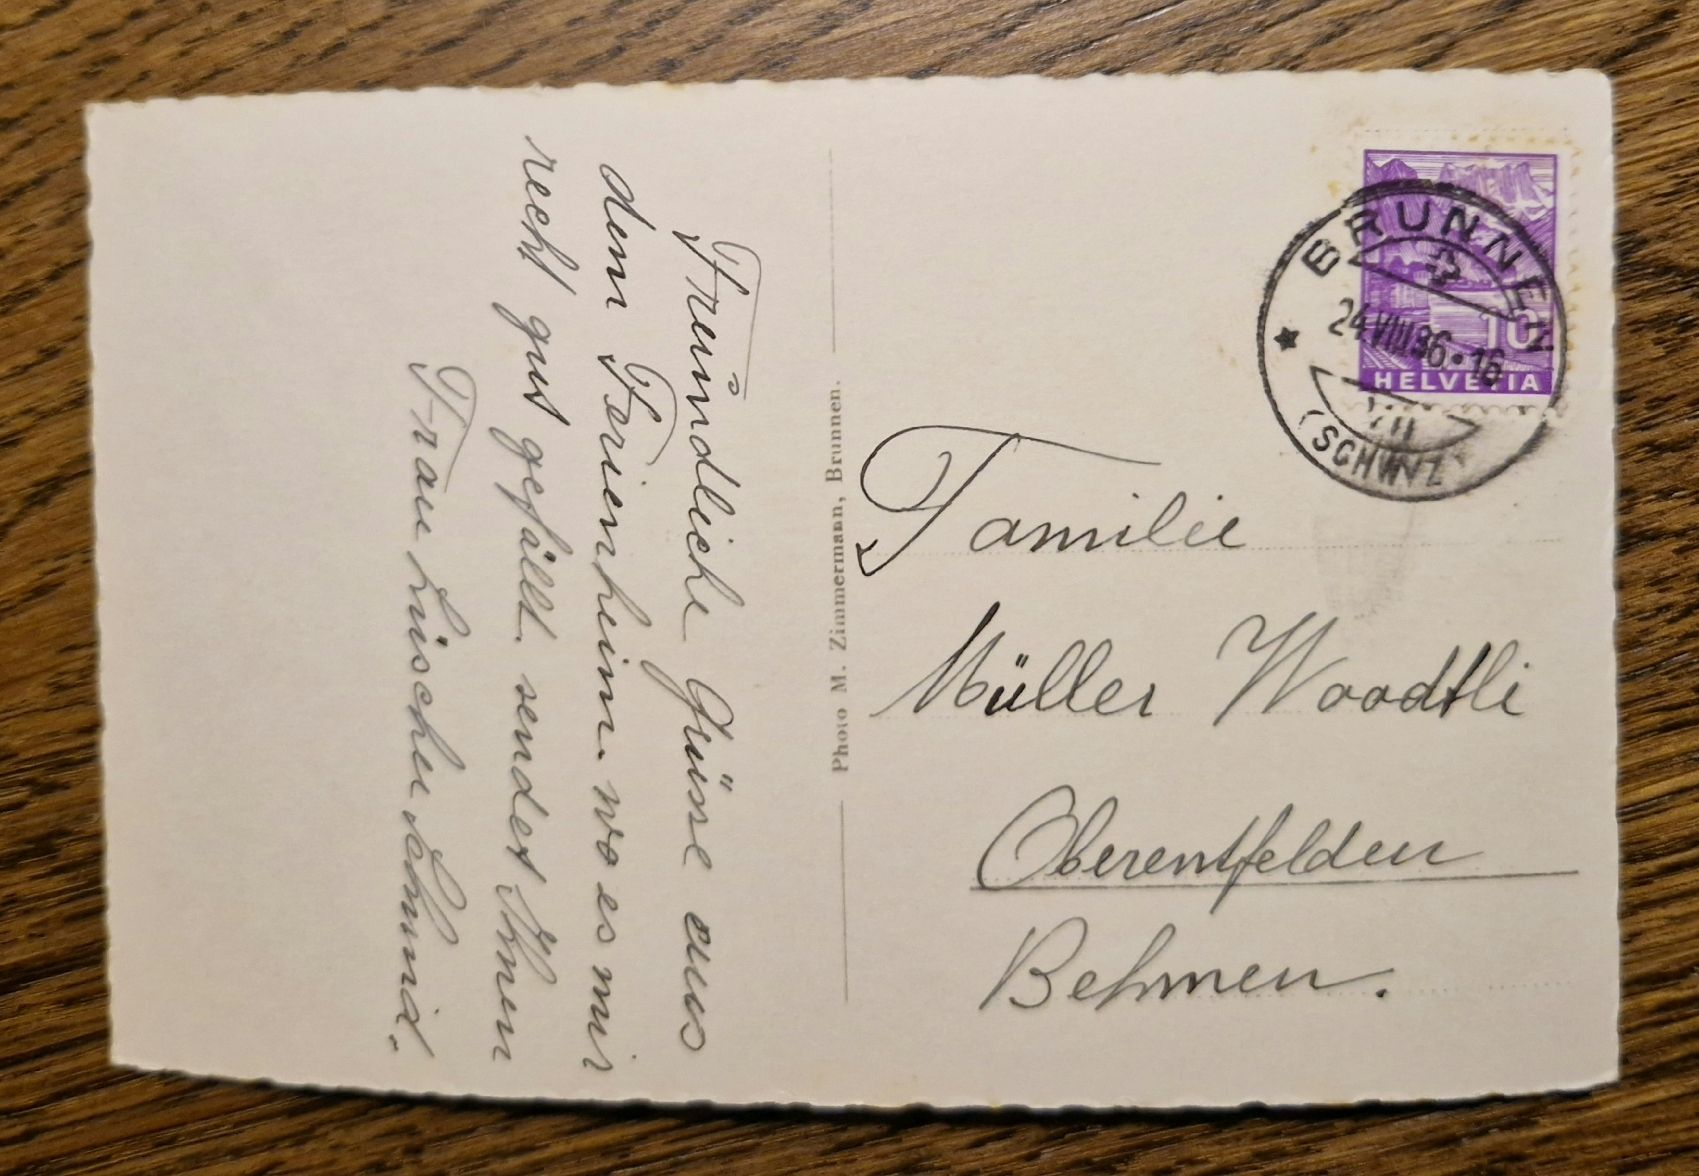 Freundliche Grüsse aus
dem Ferienheim. wo es mir
recht gut gefällt. sendet Ihnen
Frau Lüscher Schmid.
Photo M. Zimmermann, Brunnen.
BRUNNEN
24.VIII.36•16
(SCHWYZ)
10
HELVETIA
Familie
Müller Woodtli
Oberentfelden
Behmen.